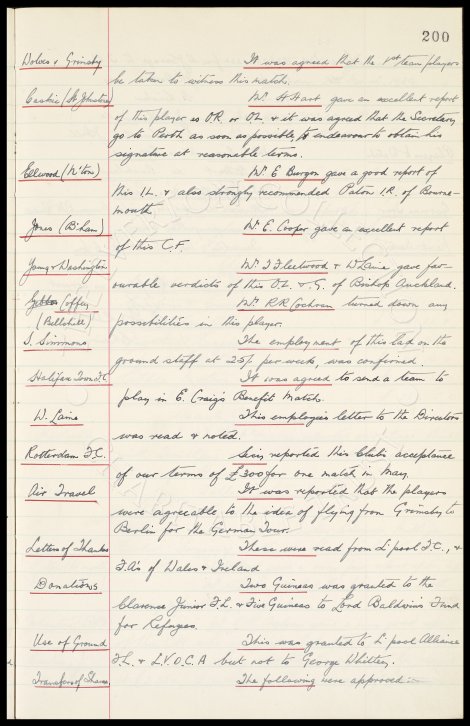 200
Wolves v Grimsby It was agreed that the 1st team players
be taken to witness this match.
Caskie (St Johnstone) Mr. H Hart gave an excellent report
of this player as OR or OL & it was agreed that the Secretary
go to Perth as soon as possible to endeavour to obtain his
signature at reasonable terms.
Ellwood (N'ton) Mr. E Burgon gave a good report of
this I.L. & also strongly recommended Paton I.R. of Bourne-
mouth.
Jones (B'ham) Mr. E. Cooper gave an excellent report
of this C.F.
Young & Washington Mr. J Fleetwood & W Laine gave fav-
ourable verdicts of this OL. & G. of Bishop Auckland.
(offer) Mr. R.R. Cochran turned down any
(Bellshill) possibilities in this player.
J. Simmons The employment of this lad on the
ground staff at 25/- per week, was confirmed.
Halifax Town F.C. It was agreed to send a team to
play in E. Craig's Benefit Match.
W. Laine This employees letter to the Directors
was read & noted.
Rotterdam F.C. Secy. reported this Clubs acceptance
of our terms of £300 for one match in May.
Air Travel It was reported that the players
were agreeable to the idea of flying from Grimsby to
Berlin for the German Tour.
Letters of Thanks These were read from L'pool F.C., &
F.A's of Wales & Ireland
Donations Two Guineas was granted to the
Clarence Junior F.L. & Five Guineas to Lord Baldwins Fund
for Refugees.
Use of Ground This was granted to L'pool Alliance
F.L. & L.V.O.C.A but not to George Whitten.
Transfers of Shares The following were approved:-